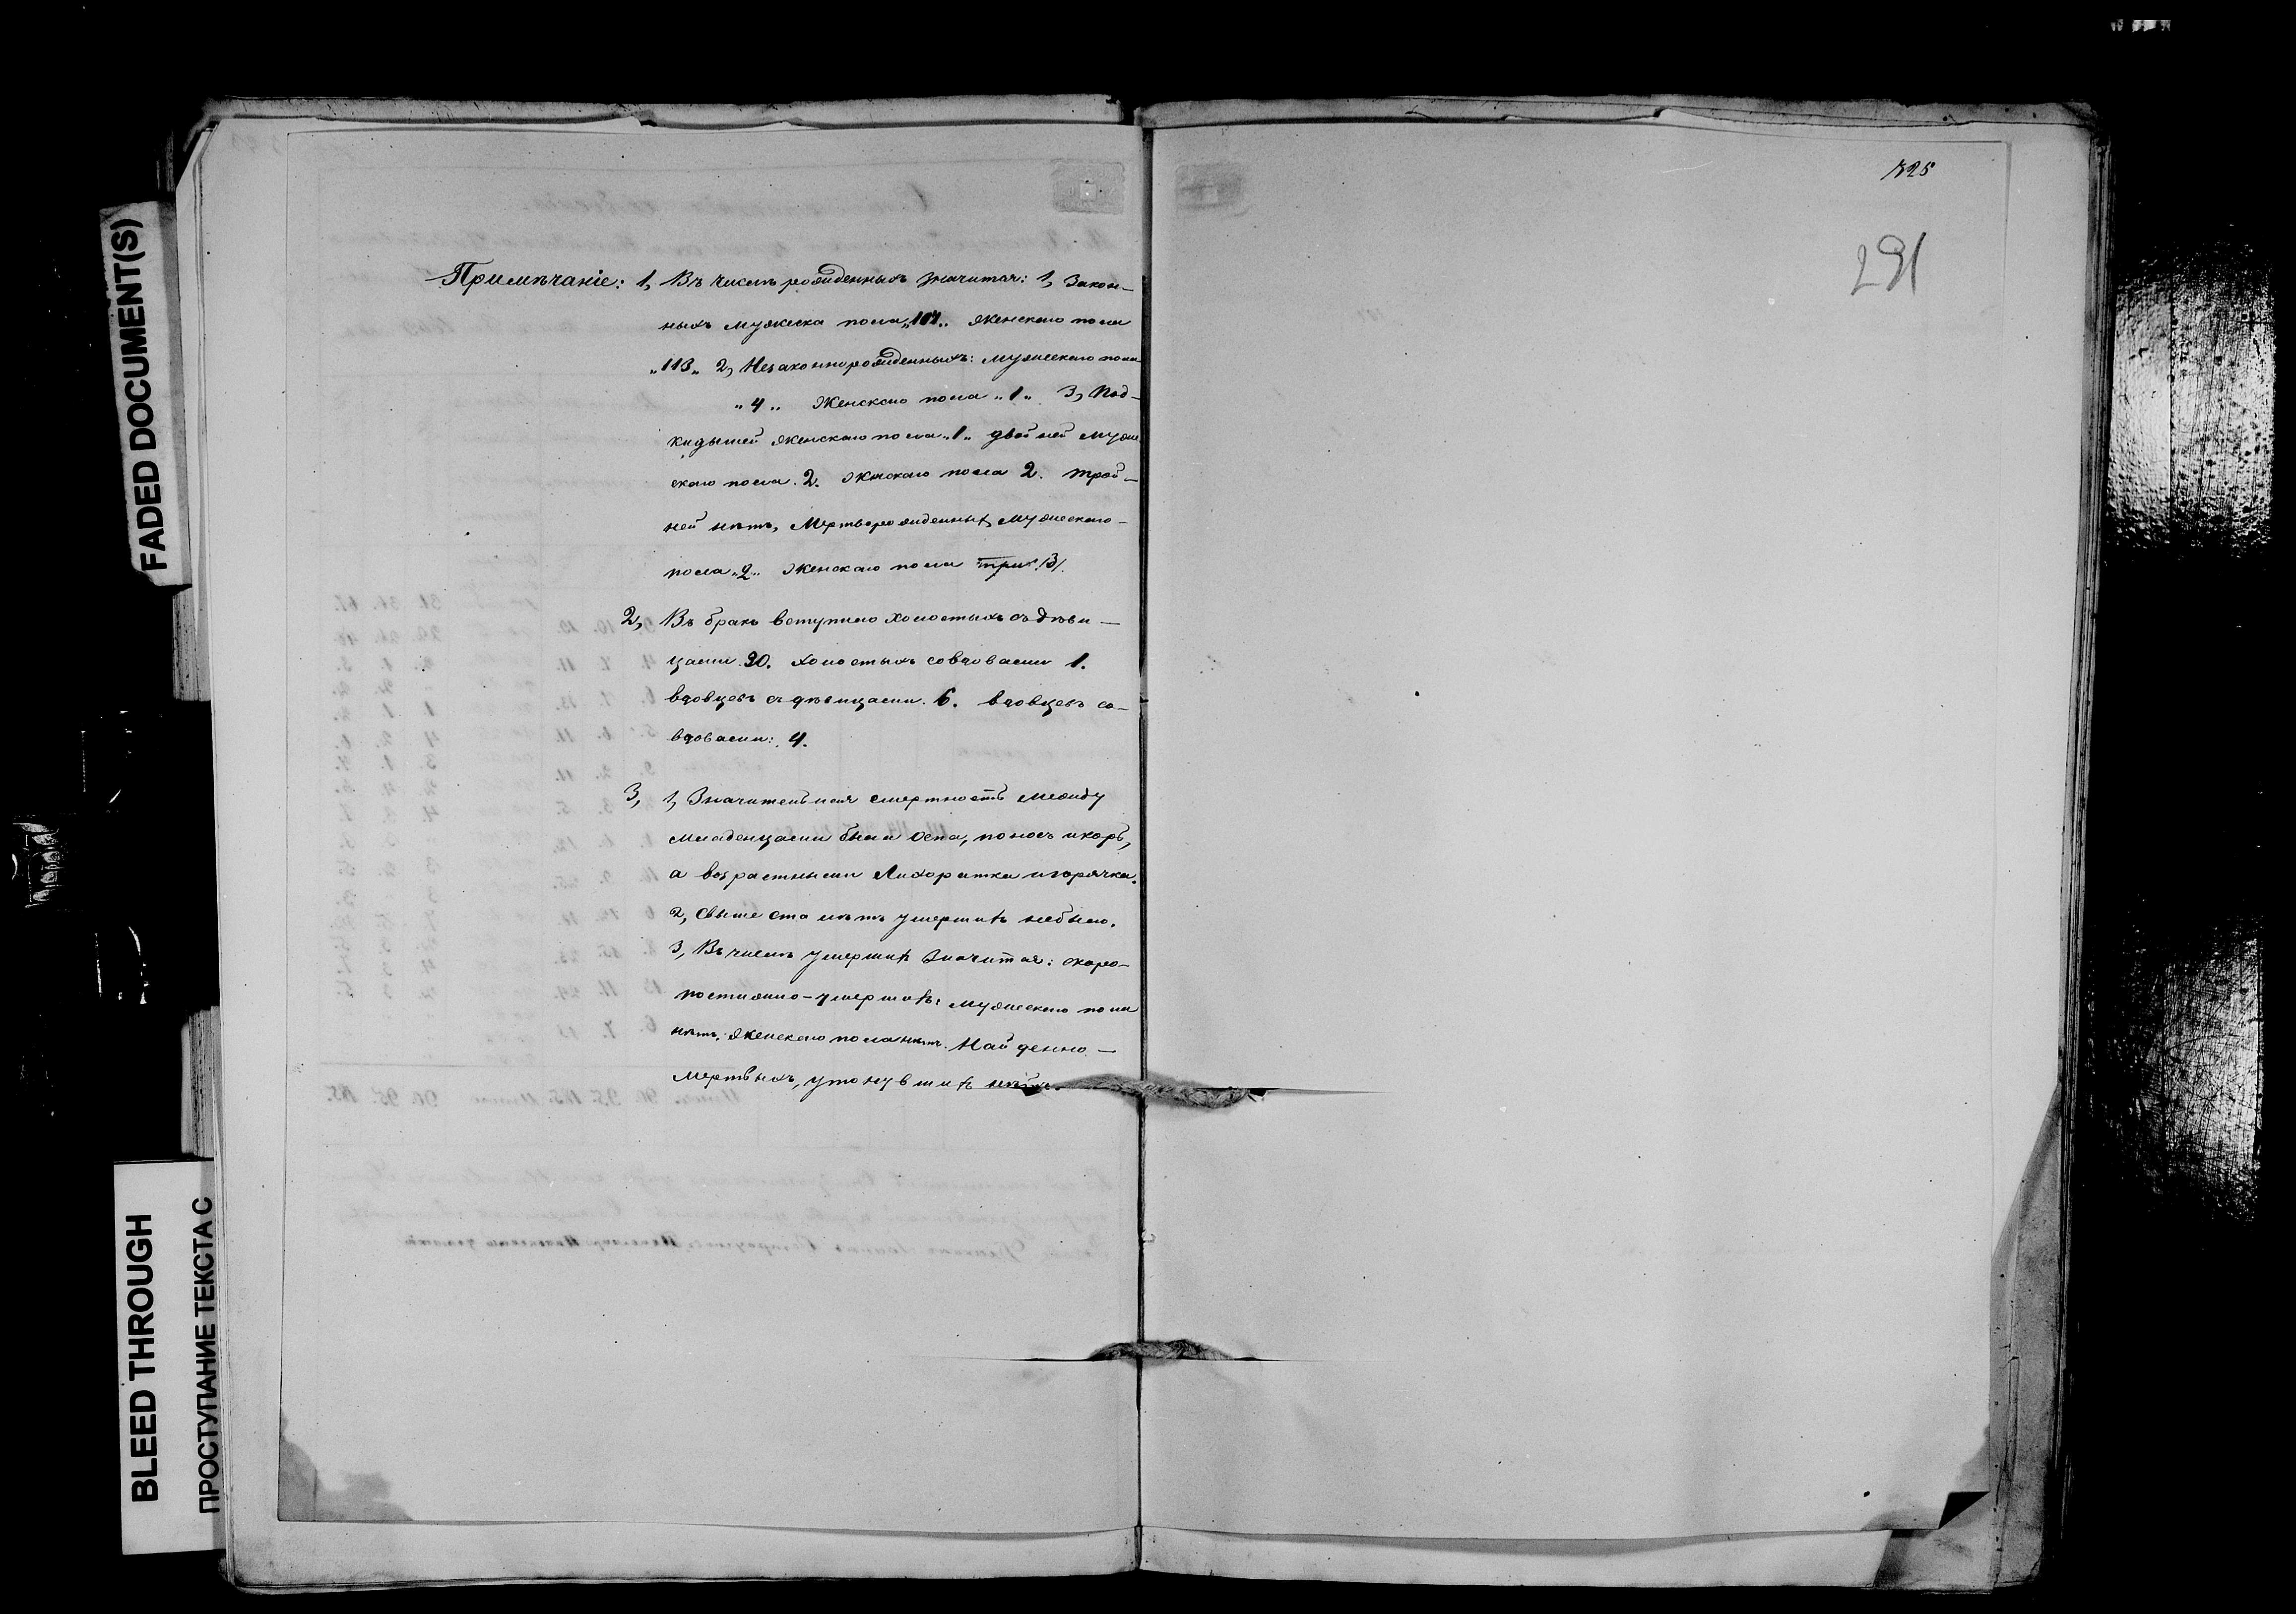 325
291
Примѣчаніе: 1, Въ числѣ рожденныхъ значится: 1, Закон-
ныхъ мужеска пола „117„ Женскаго пола
„113„ 2, Незаконнорожденныхъ: мужескаго пола
„4„ Женскаго пола „1„ 3, Под-
кидышей женскаго пола „1„ двойней муже
скаго пола. 2. Женскаго пола 2. трой-
ней нѣтъ, Мертворожденныхъ мужескаго-
пола „2„ Женскаго пола три /3/.
2, Въ бракъ вступило холостыхъ съ дѣви-
цами 30. холостыхъ со вдовами 1.
вдовцевъ съ дѣвицами. 6. вдовцевъ со-
вдовами: 4.
3, 1, Значительная смертность между
младенцами была оспа, поносъ и корь,
а возрастными Лихоратка и горячка.
2, Свыше ста лѣтъ умершихъ небыло.
3, Въ числѣ умершихъ Значится: скоро-
постижно-умершихъ: мужескаго пола
нѣтъ, женскаго пола нѣтъ. Найденно-
мертвыхъ, утонувшихъ нѣтъ.
FADED DOCUMENT(S)
BLEED THROUGH
ПРОСТУПАНИЕ ТЕКСТА С